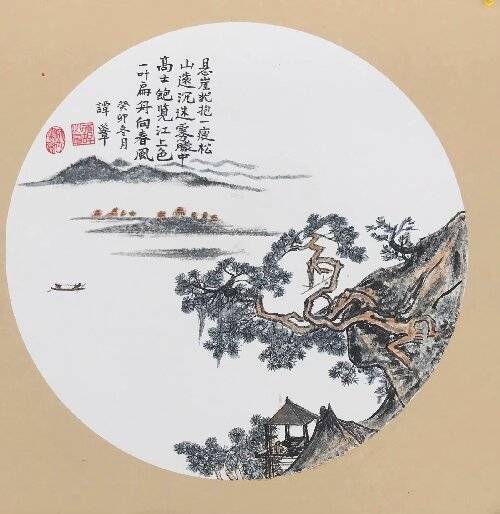 悬崖抱一瘦松
山遠沉迷雾朦中
高士飽览江上色
一叶扁舟向春风
癸卯冬月
譚